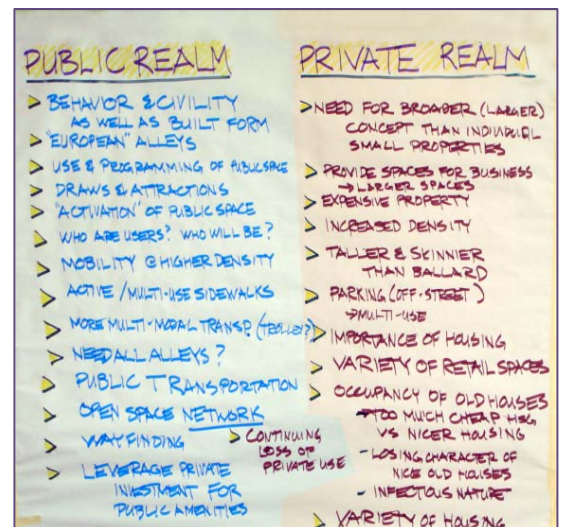 PUBLIC REALM
BEHAVIOR & CIVILITY
AS WELL AS BUILT FORM
"EUROPEAN" ALLEYS
USE & PROGRAMMING OF PUBLIC SPACE
DRAWS & ATTRACTIONS
"ACTIVATION" OF PUBLIC SPACE
WHO ARE USERS? WHO WILL BE?
MOBILITY @ HIGHER DENSITY
ACTIVE / MULTI-USE SIDEWALKS
MORE MULTI-MODAL TRANSP. (TROLLEY?)
NEED ALL ALLEYS?
PUBLIC TRANSPORTATION
OPEN SPACE NETWORK
WAYFINDING
LEVERAGE PRIVATE
INVESTMENT FOR
PUBLIC AMENITIES
CONTINUING
LOSS OF
PRIVATE USE
PRIVATE REALM
NEED FOR BROADER (LARGER)
CONCEPT THAN INDIVIDUAL
SMALL PROPERTIES
PROVIDE SPACES FOR BUSINESS
→ LARGER SPACES
EXPENSIVE PROPERTY
INCREASED DENSITY
TALLER & SKINNIER
THAN BALLARD
PARKING (OFF-STREET)
→ MULTI-USE
IMPORTANCE OF HOUSING
VARIETY OF RETAIL SPACES
OCCUPANCY OF OLD HOUSES
- TOO MUCH CHEAP HSG
VS NICER HOUSING
- LOSING CHARACTER OF
NICE OLD HOUSES
- INFECTOUS NATURE
VARIETY OF HOUSING